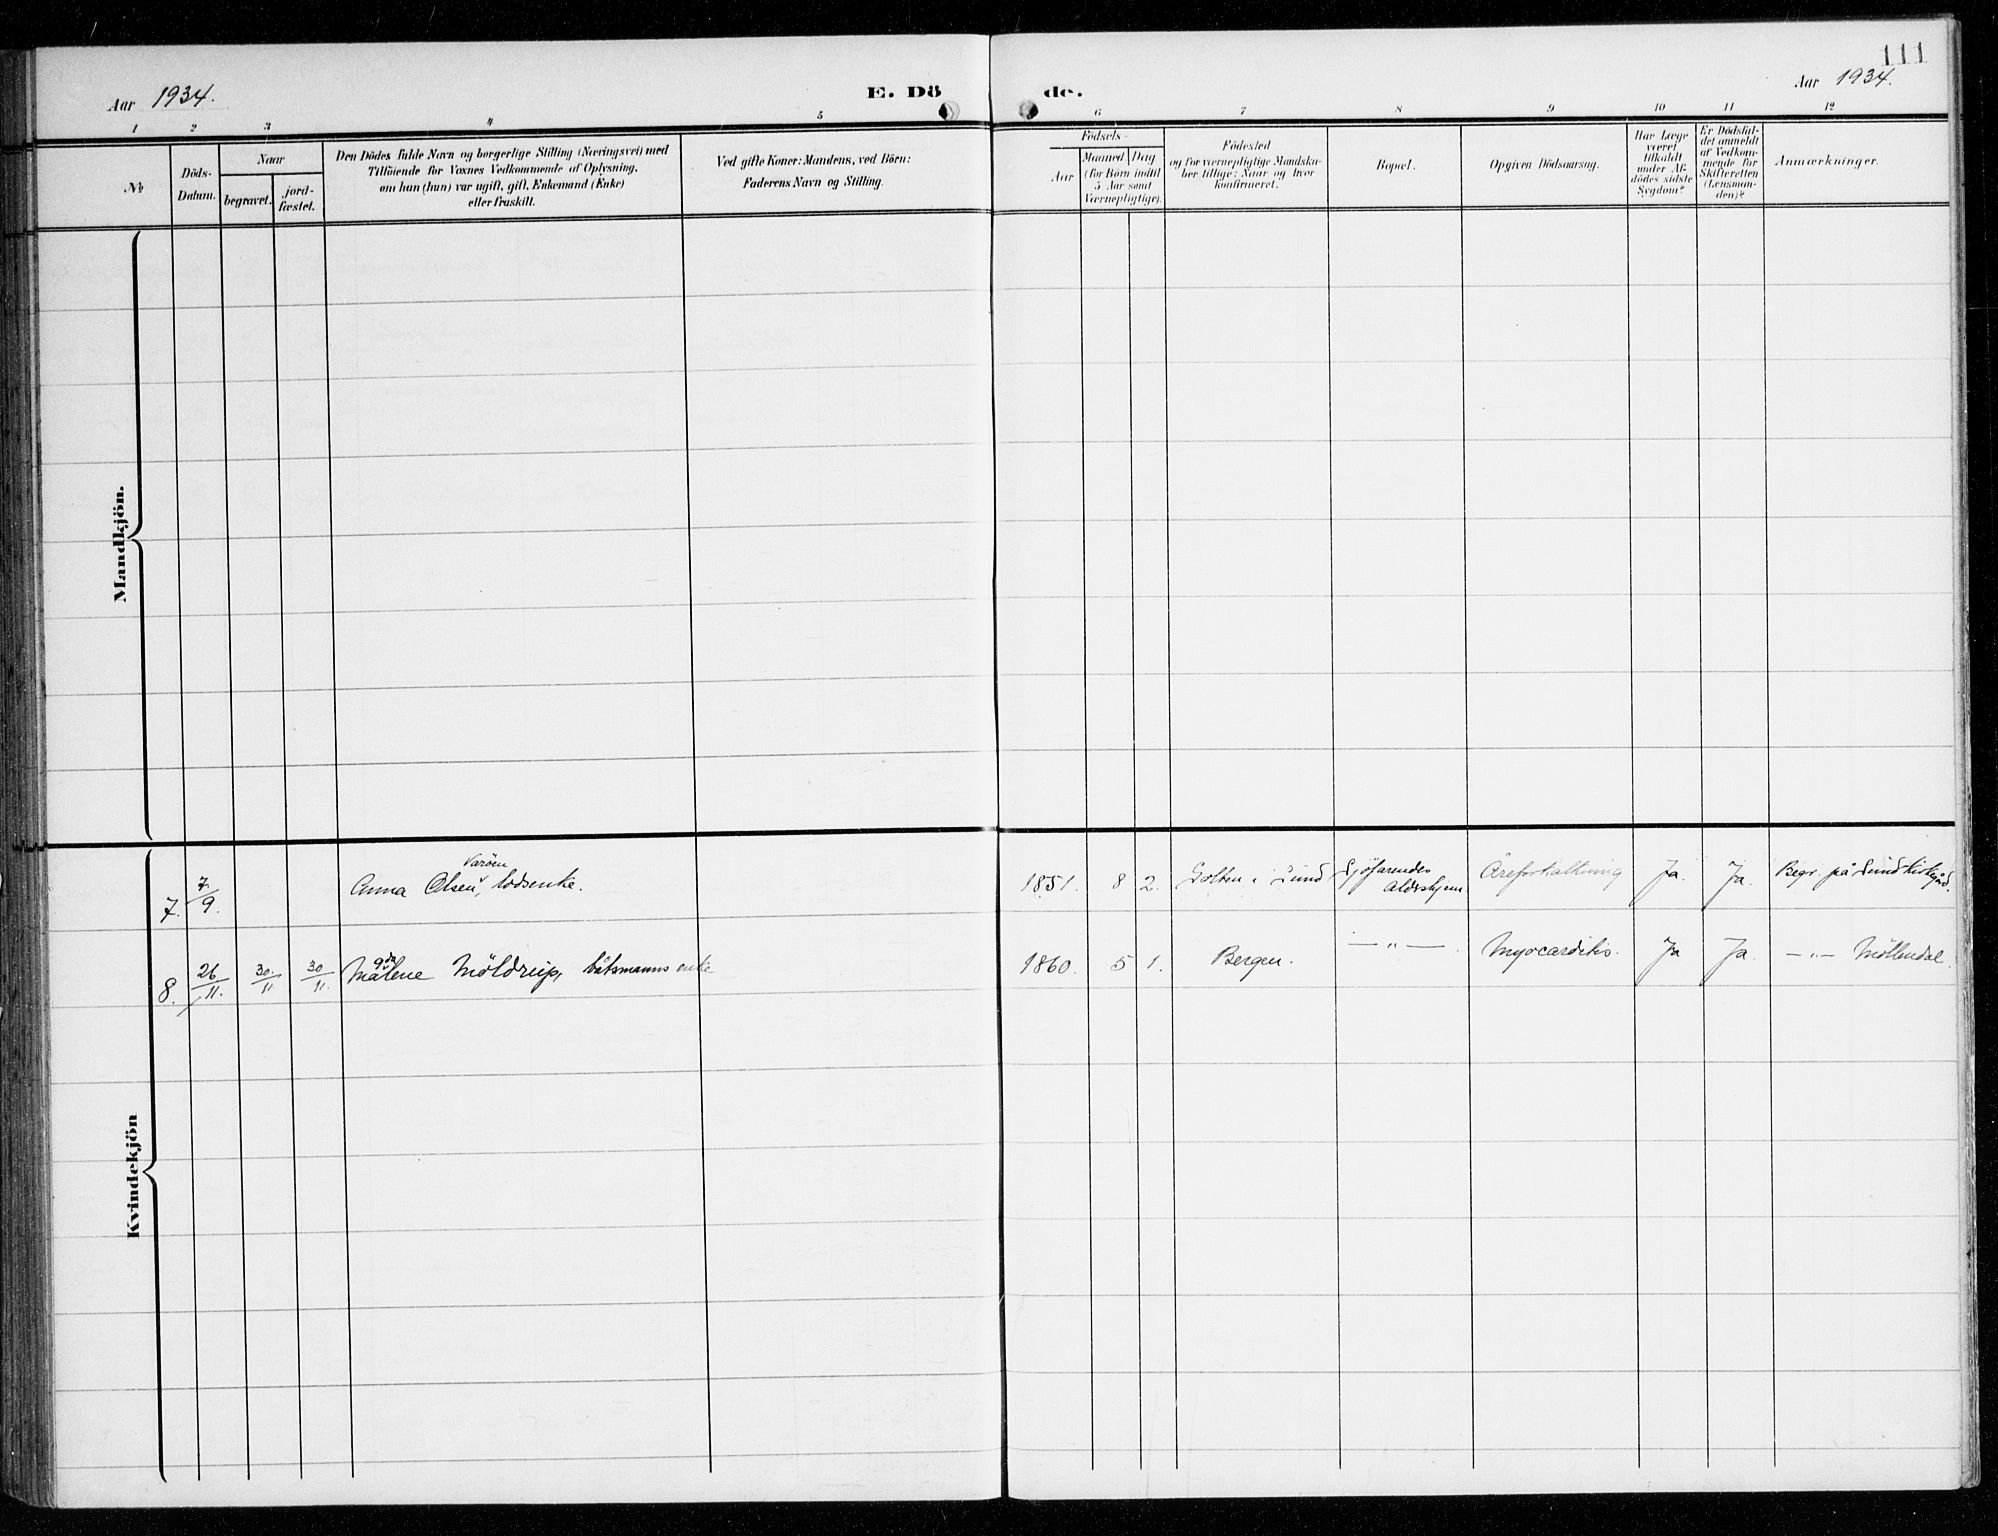 111
Aar 1934.
E. Dö
de.
Aar 1934.
1 2 3 4 5 6 7 8 9 10 11 12
No
Döds-
Datum.
Naar
begravet.
jord-
fæstet.
Den Dödes fulde Navn og borgerlige Stilling (Næringsvei) med
Tilföiende for Voxnes Vedkommende af Oplysning,
om han (hun) var ugift, gift, Enkemand (Enke)
eller fraskilt.
Ved gifte Koner: Mandens, ved Börn:
Faderens Navn og Stilling.
Födsels-
Aar
Maaned Dag
(for Börn indtil
5 Aar samt
Værnepligtige).
Födested
og for værnepligtige Mandska-
ber tillige: Naar og hvor
konfirmeret.
Bopæl.
Opgiven Dödsaarsag.
Har Læge
været
tilkaldt
under Af-
dödes sidste
Sygdom?
Er Dödsfal-
det anmeldt
af Vedkom-
mende for
Skifteretten
(Lensman-
den)?
Anmærkninger.
Mandkjön.
Kvindekjön
7. 7/9. Anna Olsen Varöen, losenke. 1851. 8 2. i Sund Sjöfarendes Aldershjem Åreforkalkning Ja. Ja. Begr. på Sund kirkgård.
8. 26/11. 30/11 30/11. Magdalene Möldrup, båtsmanns enke 1860. 5 1. Bergen. — " — Myocarditis. Ja Ja. — " — Möllendal.